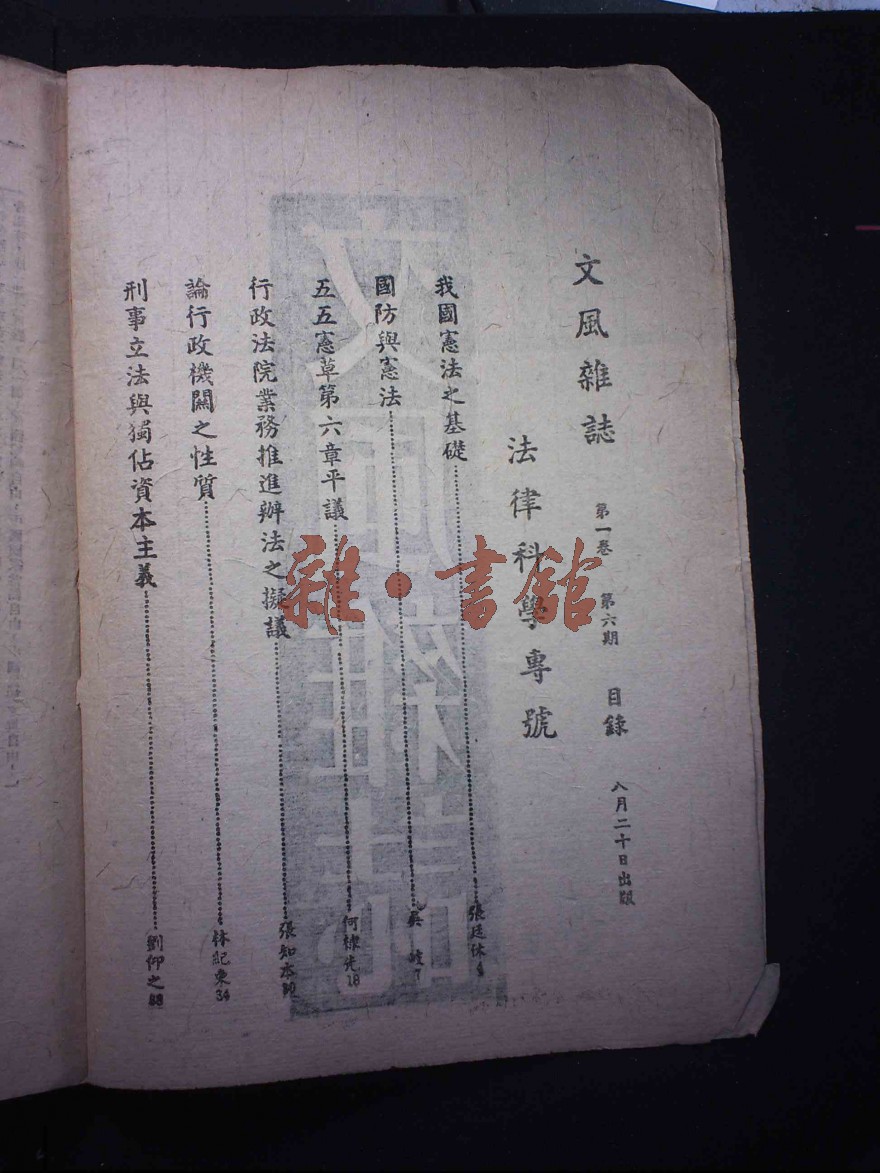 文風雜誌 第一卷 第六期 目錄 八月二十日出版
法律科學專號
我國憲法之基礎……張廷休
國防與憲法……吳 岐 7
五五憲草第六章平議……何棣先 18
行政法院業務推進辦法之擬議……張知本 30
論行政機關之性質……林紀東 34
刑事立法與獨佔資本主義……劉仰之 38
雜·書館